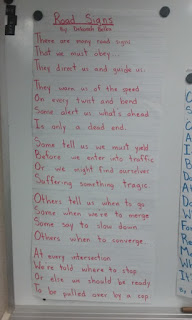 Road Signs
By: Deborah Bellis
There are many road signs
That we must obey...
They direct us and guide us.
They warn us of the speed
On every twist and bend
Some alert us what's ahead
Is only a dead end.
Some tell us we must yield
Before we enter into traffic
Or we might find ourselves
Suffering something tragic.
Others tell us when to go
Some when we're to merge
Some say to slow down
Others when to converge.
At every intersection
We're told where to stop
Or else we should be ready
To be pulled over by a cop